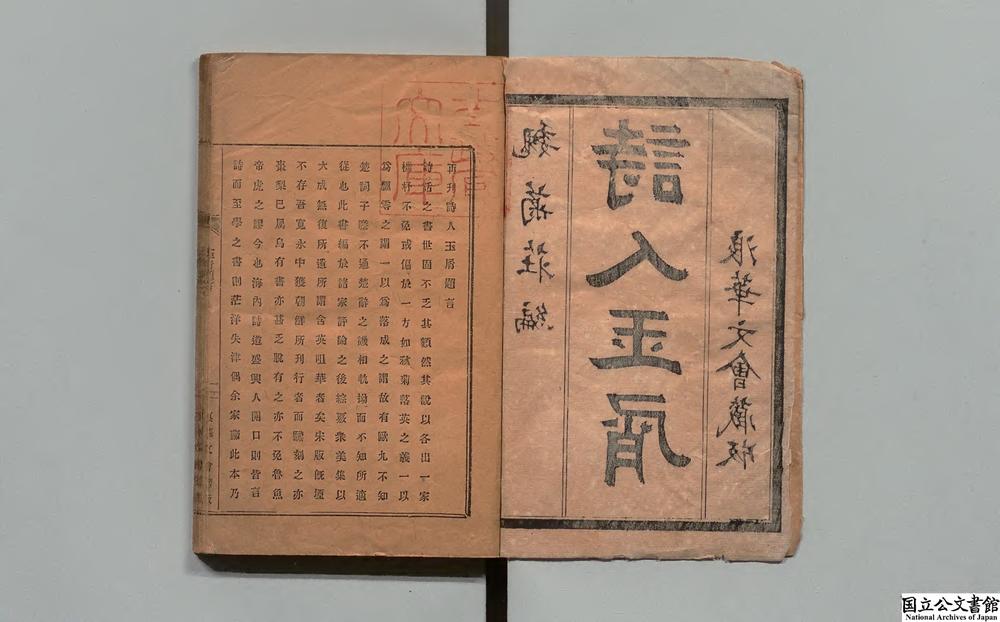 魏菊莊編
詩人玉屑
浪華文會藏版
再刊詩人玉屑題言
詩話之書世固不乏其類然其說以各出一家
機杼不免或偏於一方如秋菊落英之義一以
為飄零之謂一以為落成之謂故有歐九不知
楚詞子瞻不通楚辭之譏相軋揚而不知所適
從也此書編於諸家評論之後綜聚衆美集以
大成無復所遺所謂含英咀華者矣宋版既堙
不存吾寬永中獲朝鮮所刊行者而翻刻之亦
棗梨已屬烏有書亦甚乏脫有之亦不免魯魚
帝虎之謬今也海內詩道盛興人開口則皆言
詩而至學之書則茫洋失津偶余家藏此本乃
文庫
国立公文書館
National Archives of Japan